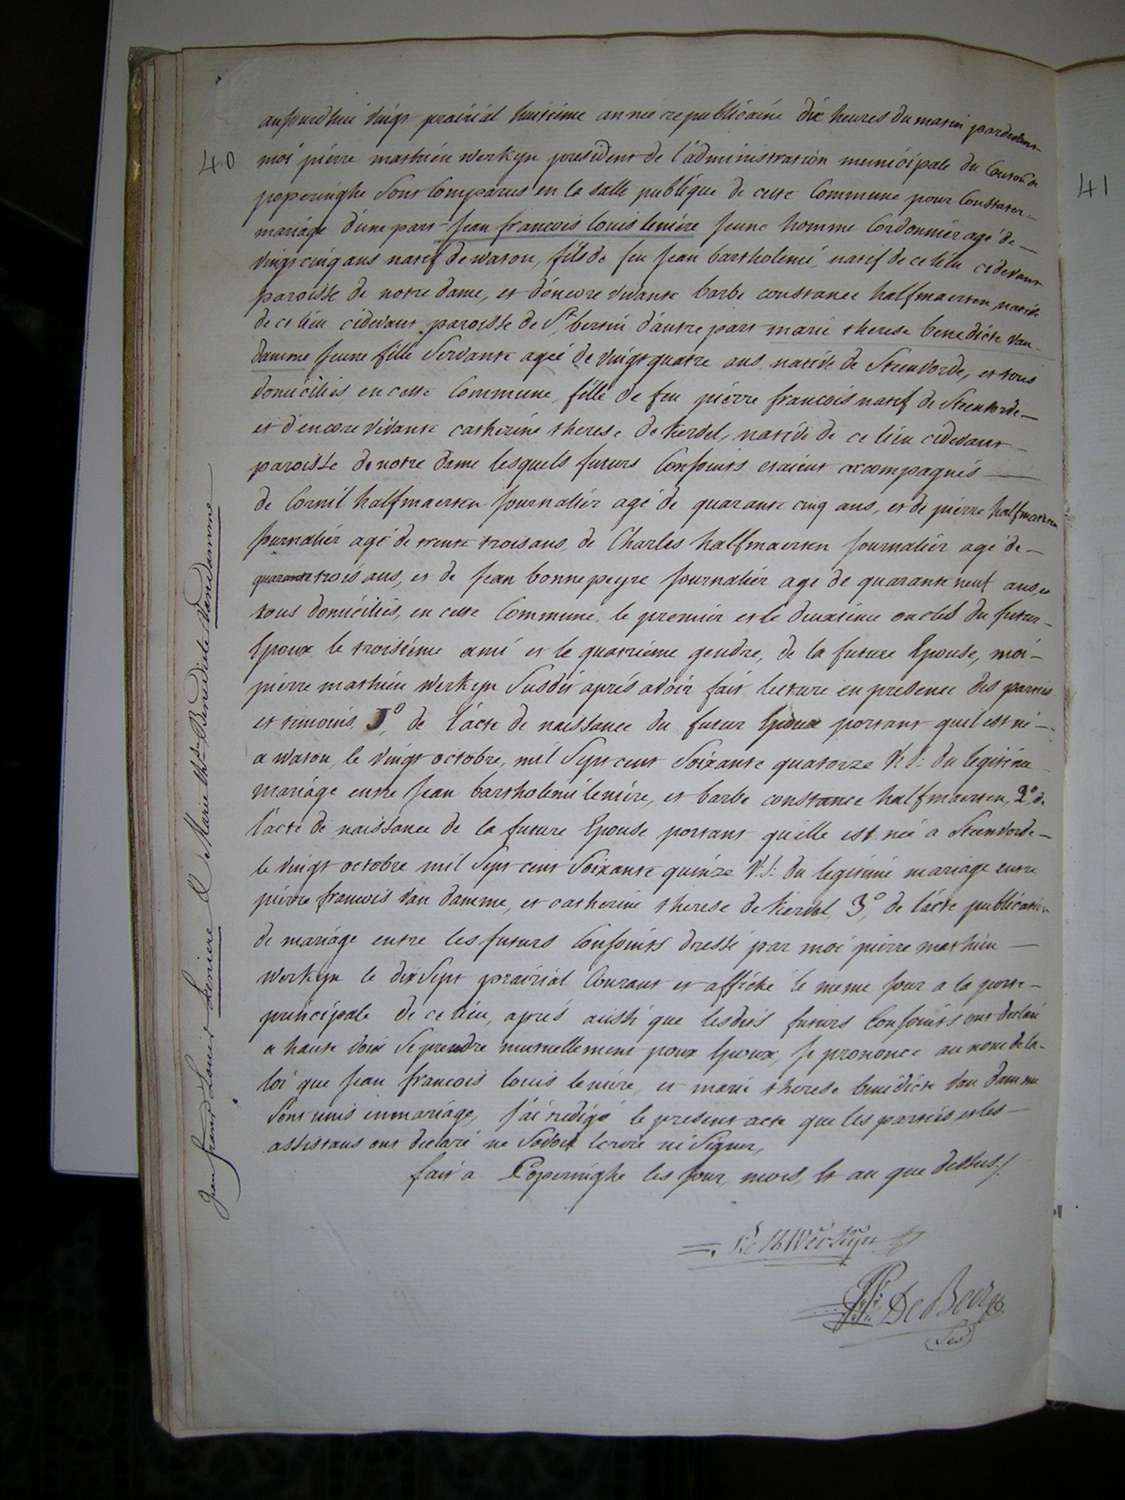 40
41
aujourdhui vingt prairial huitieme année republicaine dix heures du matin pardevant
moi pierre mathieu werkyn president de l'administration municipale du Canton de
poperinghe sont Comparus en la salle publique de cette Commune pour Constater
mariage d'une part Jean francois louis leniere Jeune homme Cordonnier agé de
vingt cinq ans natif de watou, fils de feu Jean bartholemé, natif de ce lieu cidevant
paroisse de notre dame, et d'encore vivante barbe constance halfmaerten, native
de ce lieu cidevant paroisse de St. bertin d'autre part marie therese benedicte van
damme Jeune fille Servante ageé de vingt quatre ans native de Steenvorde, et tous
domiciliés en cette Commune, fille de feu pierre francois natif de Steenvorde
et d'encore vivante catherine therese de Kerdel, native de ce lieu cidevant
paroisse de notre dame lesquels futurs Conjoints etaient accompagnés
de Cornil halfmaerten Journalier agé de quarante cinq ans, et de pierre halfmaerten
Journalier agé de trente trois ans, de Charles halfmaerten Journalier agé de
quarante trois ans, et de Jean bonnepeyre Journalier agé de quarante neuf ans
tous domiciliés, en cette Commune. le premier et le deuxieme oncles du futur
Epoux le troisiéme ami et le quatriéme gendre, de la future Epouse, moi
pierre mathieu Werkyn Susdit aprés avoir fait lecture en presence des parties
et timoins 1° de l'acte de naissance du futur Epoux portant quil est né
a watou, le vingt octobre, mil Sept cent Soixante quatorze V.S: du legitime
mariage entre Jean bartholemé leniere, et barbe constance halfmaerten, 2° de
l'acte de naissance de la future Epouse portant qu'elle est née a Steenvorde
le vingt octobre mil Sept cent Soixante quinze V.S: du legitime mariage entre
pierre francois Van damme, et catherine therese de Kerdel, 3° de l'acte publication
de mariage entre les futurs Conjoints dressé par moi pierre mathieu
werkyn le dix Sept prairial Courant et affiché le meme Jour a la porte
principale de ce lieu, aprés aussi que lesdits futurs Conjoints ont declaré
a haute voix Se prendre mutuellement pour Epoux, Je prononce au nom de la
loi que Jean francois louis leniere, et marie therese benedicte Van damme
Sont unis en mariage, J'ai redigé le present acte que les parties et les
assistans ont declaré ne Savoir Ecrire ni Signer,
fait a Poperinghe les Jour, mois, et an que dessus ./.
P: M Werkyn
De Beer
Sec
Jean franç Louis Leniere & Marie Thse Benedicte Vandamme